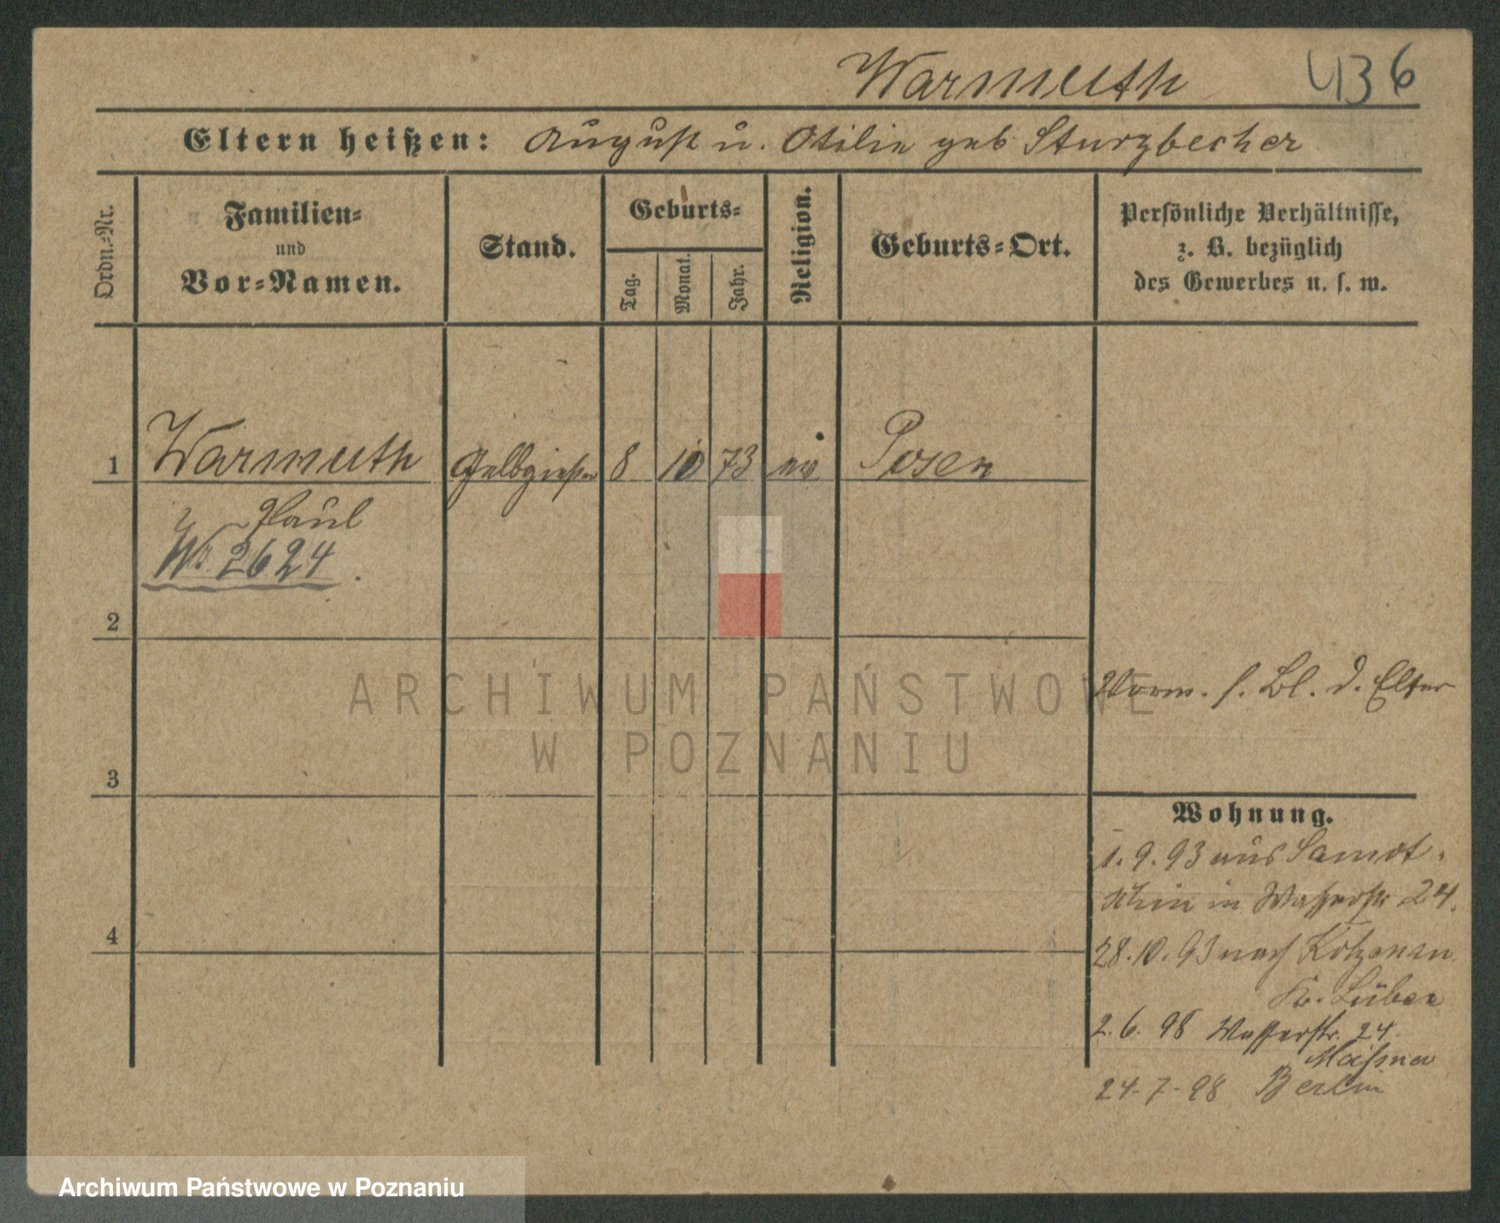 Warmuth 436
Eltern heißen: August u. Otilie geb Sturzbecher
Ordn.-Nr.
Familien-
und
Vor-Namen.
Stand.
Geburts-
Tag.
Monat.
Jahr.
Religion.
Geburts-Ort.
Persönliche Verhältnisse,
z. B. bezüglich
des Gewerbes u. s. w.
1 Warmuth Gelbgießer 8 10 73 ev Posen
Paul
W. 2624
2
Vorm. s. Bl. d. Elter
3
Wohnung.
1. 9. 93 aus
in Wasserstr 24.
4
28. 10. 93 nach Kotzenau
Kr. Lüben
2. 6. 98 Wasserstr. 24.
24. 7. 98 Berlin
ARCHIWUM PAŃSTWOWE
W POZNANIU
Archiwum Państwowe w Poznaniu